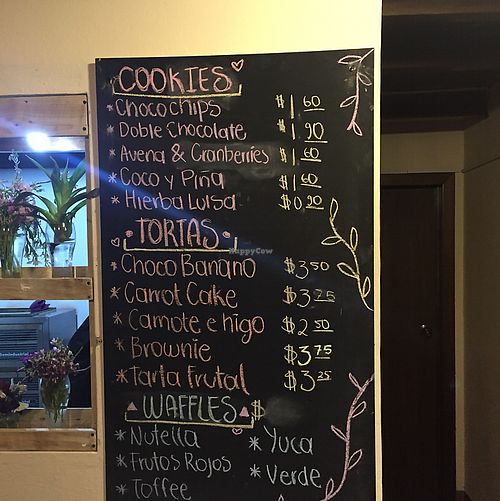 COOKIES
* Choco chips $1 60
* Doble Chocolate $1 90
* Avena & Cranberries $1 60
* Coco y Piña $1 60
* Hierba Luisa $0 90
• TORTAS •
* Choco Banano $3 50
* Carrot Cake $3 75
* Camote e higo $2 50
* Brownie $3 75
* Tarta Frutal $3 25
WAFFLES $
* Nutella * Yuca
* Frutos Rojos * Verde
* Toffee
HappyCow